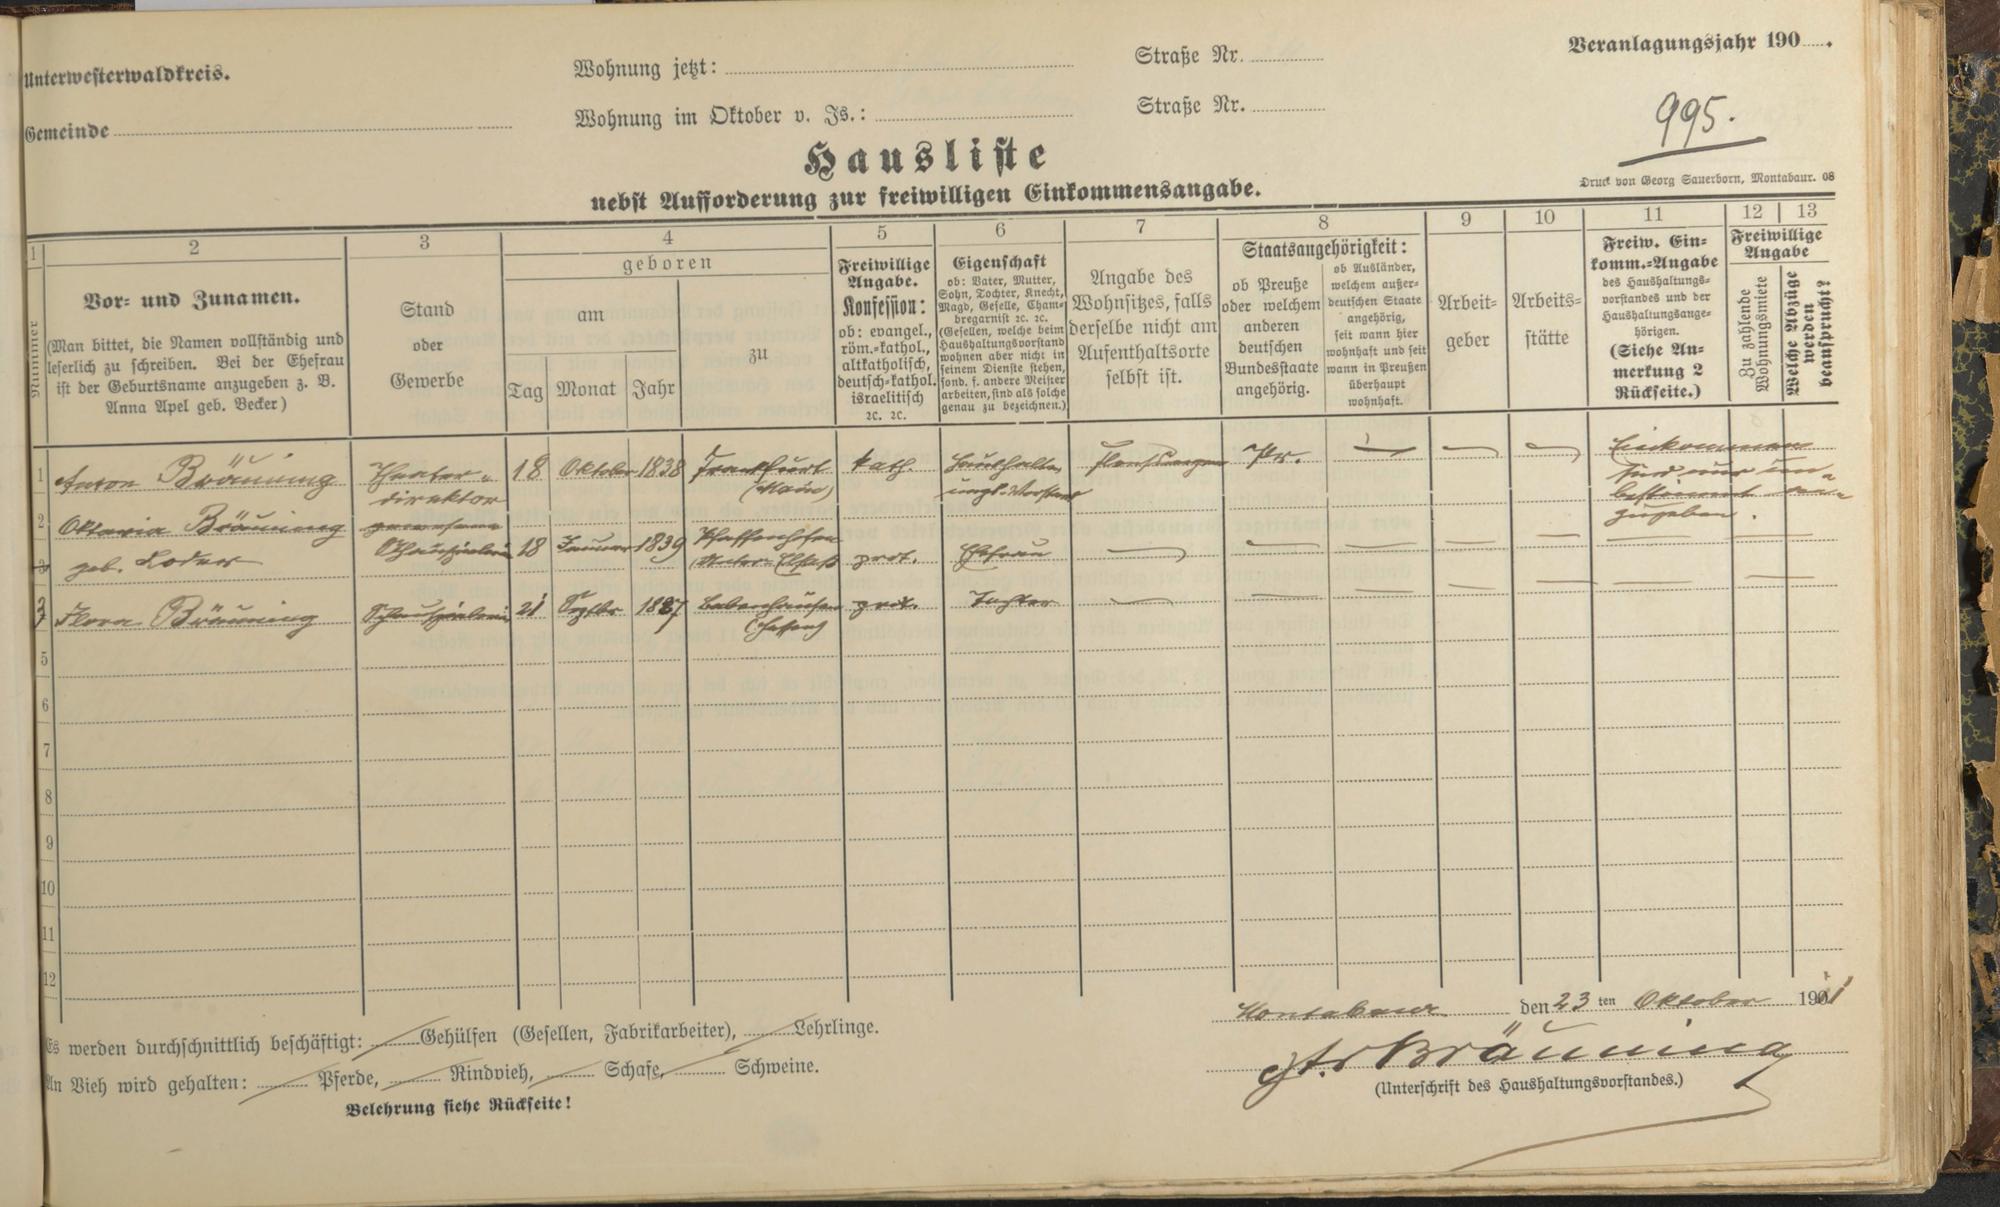 Unterwesterwaldkreis.
Gemeinde
Wohnung jetzt:
Wohnung im Oktober v. Js.:
Straße Nr.
Straße Nr.
Veranlagungsjahr 190 .
995.
Hausliste
nebst Aufforderung zur freiwilligen Einkommensangabe.
Druck von Georg Sauerborn, Montabaur. 08
1
Nummer
2
Vor- und Zunamen.
(Man bittet, die Namen vollständig und
leserlich zu schreiben. Bei der Ehefrau
ist der Geburtsname anzugeben z. B.
Anna Apel geb. Becker)
3
Stand
oder
Gewerbe
4
geboren
am
Tag Monat Jahr
zu
5
Freiwillige
Angabe.
Konfession:
ob: evangel.,
röm.-kathol.,
altkatholisch,
deutsch-kathol.
israelitisch
2c. 2c.
6
Eigenschaft
ob: Vater, Mutter,
Sohn, Tochter, Knecht,
Magd, Geselle, Cham-
bregarnist 2c. 2c.
(Gesellen, welche beim
Haushaltungsvorstand
wohnen aber nicht in
seinem Dienste stehen,
sond. f. andere Meister
arbeiten, sind als solche
genau zu bezeichnen.)
7
Angabe des
Wohnsitzes, falls
derselbe nicht am
Aufenthaltsorte
selbst ist.
8
Staatsangehörigkeit:
ob Preuße
oder welchem
anderen
deutschen
Bundesstaate
angehörig.
ob Ausländer,
welchem außer-
deutschen Staate
angehörig,
seit wann hier
wohnhaft und seit
wann in Preußen
überhaupt
wohnhaft.
9
Arbeit-
geber
10
Arbeits-
stätte
11
Freiw. Ein-
komm.-Angabe
des Haushaltungs-
vorstandes und der
Haushaltungsange-
hörigen.
(Siehe An-
merkung 2
Rückseite.)
12 13
Freiwillige
Angabe
Zu zahlende
Wohnungsmiete
Welche Abzüge
werden
beansprucht?
1 Anton Bräuning Theater-
direktor 18 Oktober 1838 Frankfurt
(Main) kath. Haushalt-
ungs-Vorstand Pr. Einkommen
sind nur un-
bestimmt an-
zugeben.
2 Oktavia Bräuning
geb. Loder gewesene
Schauspielerin 18 Januar 1839 Pfaffenhofen
(Unter-Elsaß prot. Ehefrau
3 Flora Bräuning Schauspielerin 21 Septbr 1887 Babenhausen
(Hessen) prot. Tochter
5
6
7
8
9
10
11
12
Es werden durchschnittlich beschäftigt: Gehülfen (Gesellen, Fabrikarbeiter), Lehrlinge.
An Vieh wird gehalten: Pferde, Rindvieh, Schafe, Schweine.
Belehrung siehe Rückseite!
Montabaur den 23 ten Oktober 1911
Bräuning
(Unterschrift des Haushaltungsvorstandes.)